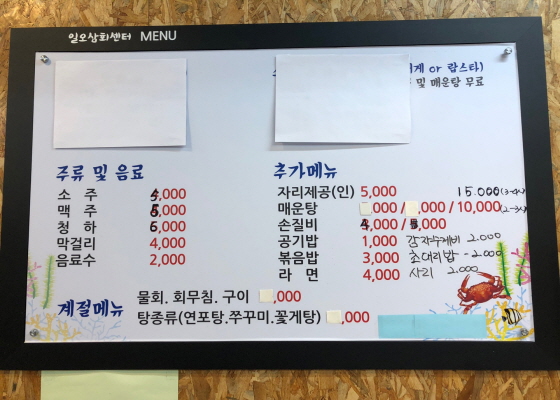 일오삼회센터 MENU
게 or 랍스타)
및 매운탕 무료
주류 및 음료
소 주 ,000
맥 주 ,000
청 하 6,000
막걸리 4,000
음료수 2,000
추가메뉴
자리제공(인) 5,000 15.000(3-4人)
매운탕 ,000 / ,000 / 10,000(2-3人)
손질비 ,000 / ,000
공기밥 1,000 감자수제비 2.000
볶음밥 3,000 초대리밥 - 2.000
라 면 4,000 사리 2.000
계절메뉴
물회. 회무침. 구이 ,000
탕종류(연포탕.쭈꾸미.꽃게탕) ,000